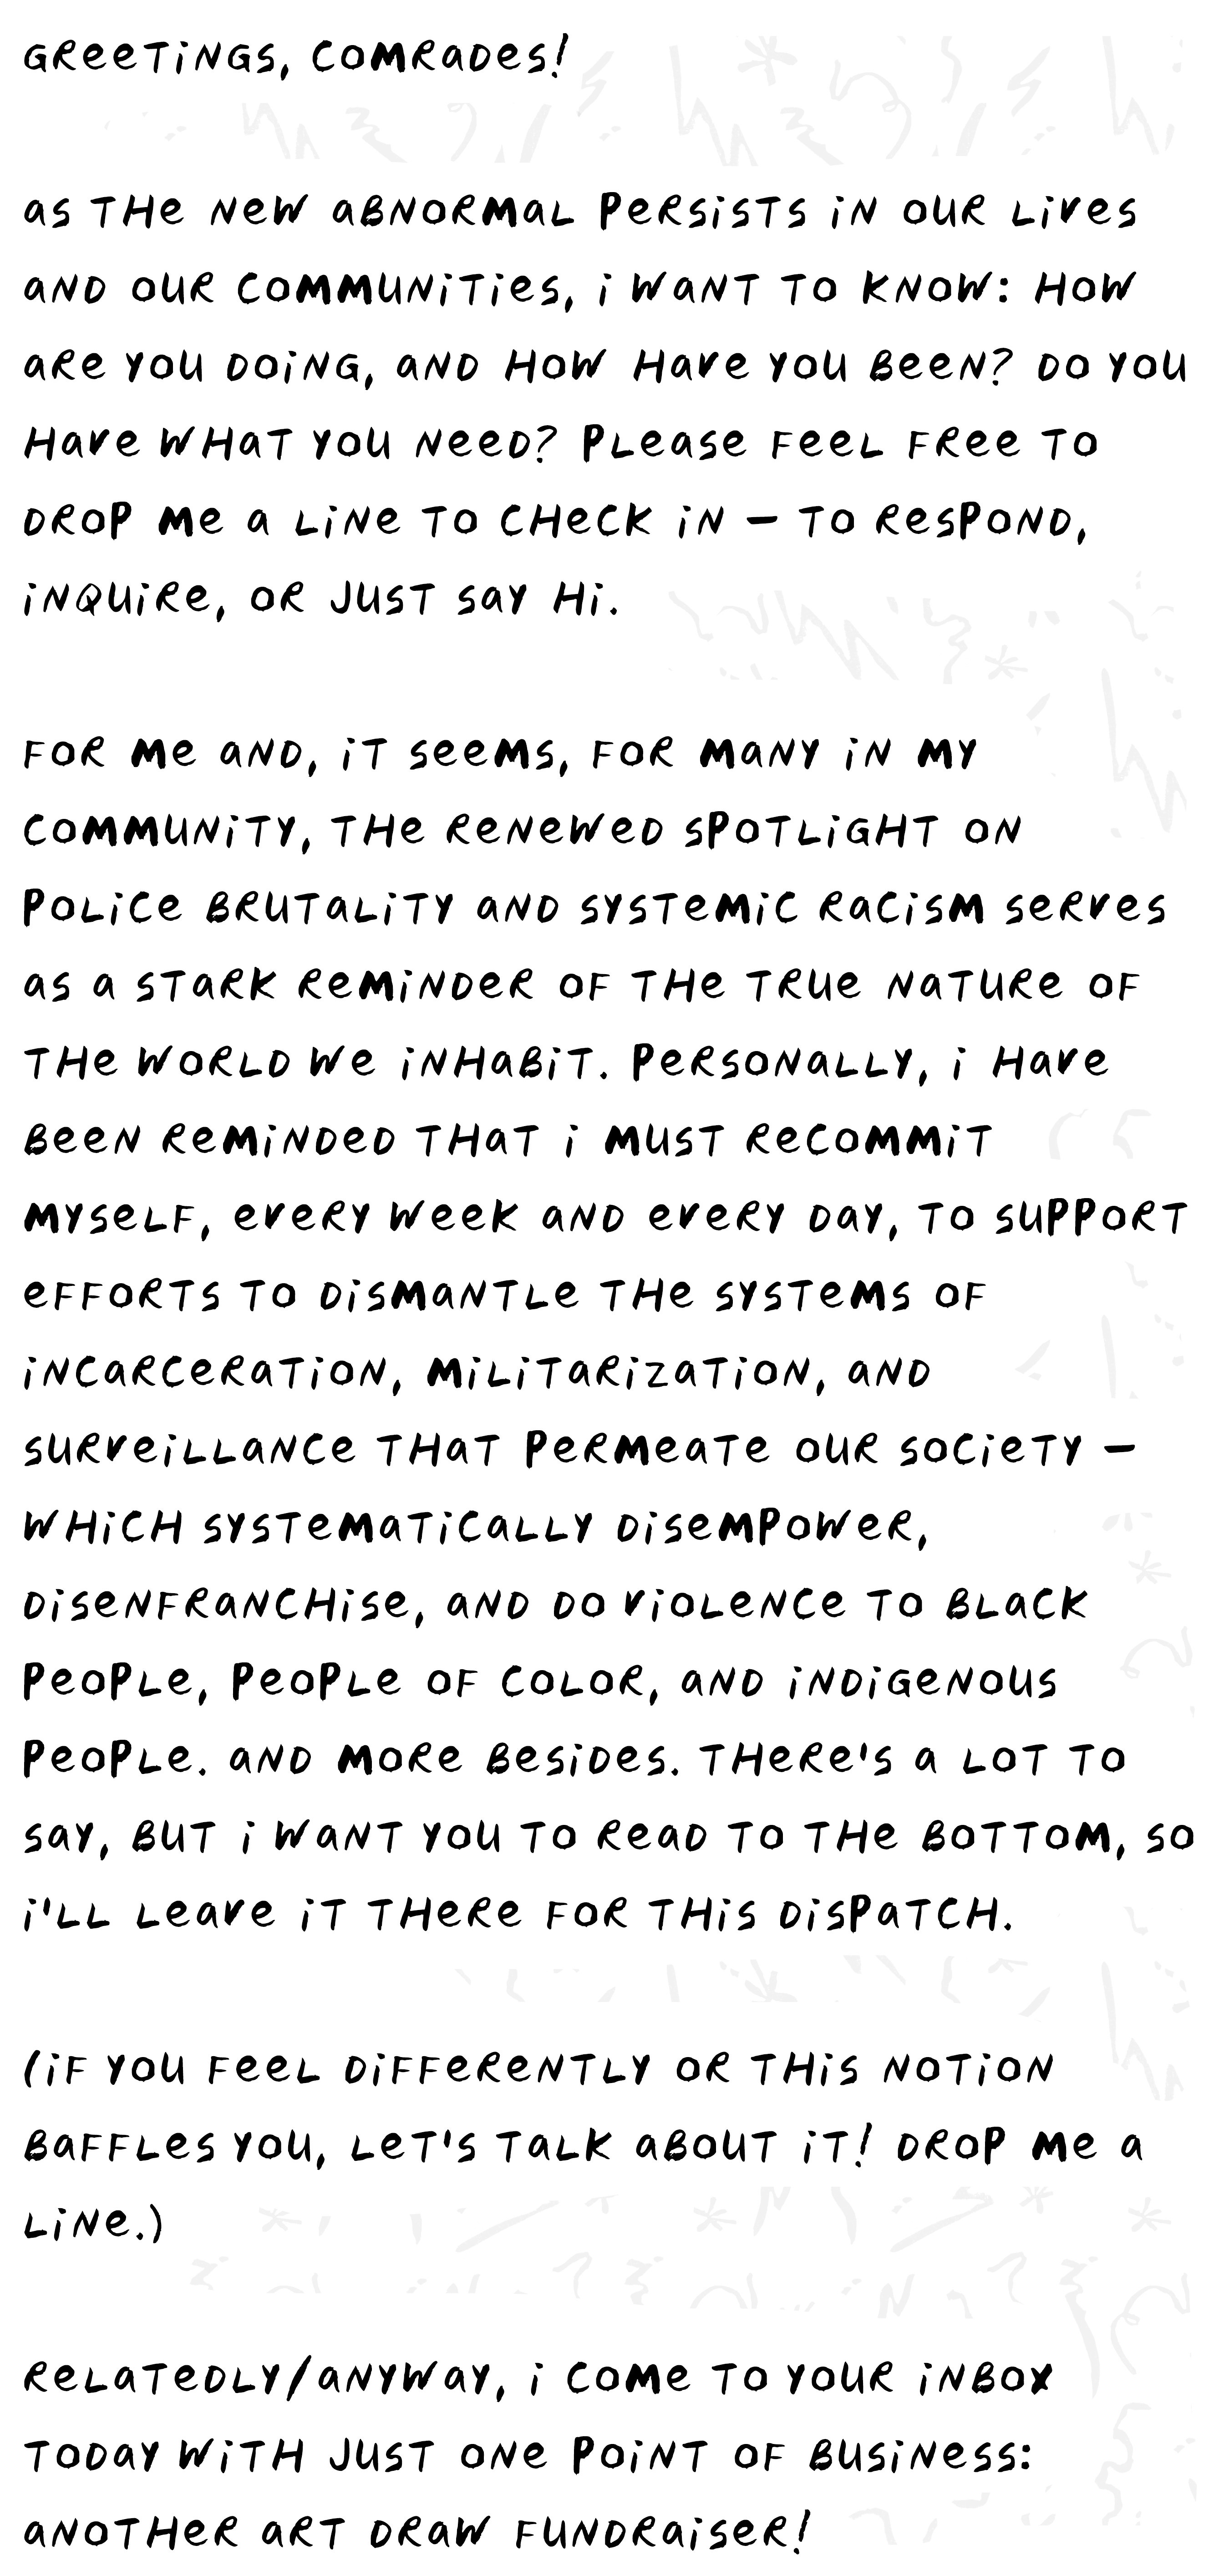 GREETINGS, COMRADES!
AS THE NEW ABNORMAL PERSISTS IN OUR LIVES
AND OUR COMMUNITIES, I WANT TO KNOW: HOW
ARE YOU DOING, AND HOW HAVE YOU BEEN? DO YOU
HAVE WHAT YOU NEED? PLEASE FEEL FREE TO
DROP ME A LINE TO CHECK IN – TO RESPOND,
INQUIRE, OR JUST SAY HI.
FOR ME AND, IT SEEMS, FOR MANY IN MY
COMMUNITY, THE RENEWED SPOTLIGHT ON
POLICE BRUTALITY AND SYSTEMIC RACISM SERVES
AS A STARK REMINDER OF THE TRUE NATURE OF
THE WORLD WE INHABIT. PERSONALLY, I HAVE
BEEN REMINDED THAT I MUST RECOMMIT
MYSELF, EVERY WEEK AND EVERY DAY, TO SUPPORT
EFFORTS TO DISMANTLE THE SYSTEMS OF
INCARCERATION, MILITARIZATION, AND
SURVEILLANCE THAT PERMEATE OUR SOCIETY –
WHICH SYSTEMATICALLY DISEMPOWER,
DISENFRANCHISE, AND DO VIOLENCE TO BLACK
PEOPLE, PEOPLE OF COLOR, AND INDIGENOUS
PEOPLE. AND MORE BESIDES. THERE'S A LOT TO
SAY, BUT I WANT YOU TO READ TO THE BOTTOM, SO
I'LL LEAVE IT THERE FOR THIS DISPATCH.
(IF YOU FEEL DIFFERENTLY OR THIS NOTION
BAFFLES YOU, LET'S TALK ABOUT IT! DROP ME A
LINE.)
RELATEDLY/ANYWAY, I COME TO YOUR INBOX
TODAY WITH JUST ONE POINT OF BUSINESS:
ANOTHER ART DRAW FUNDRAISER!